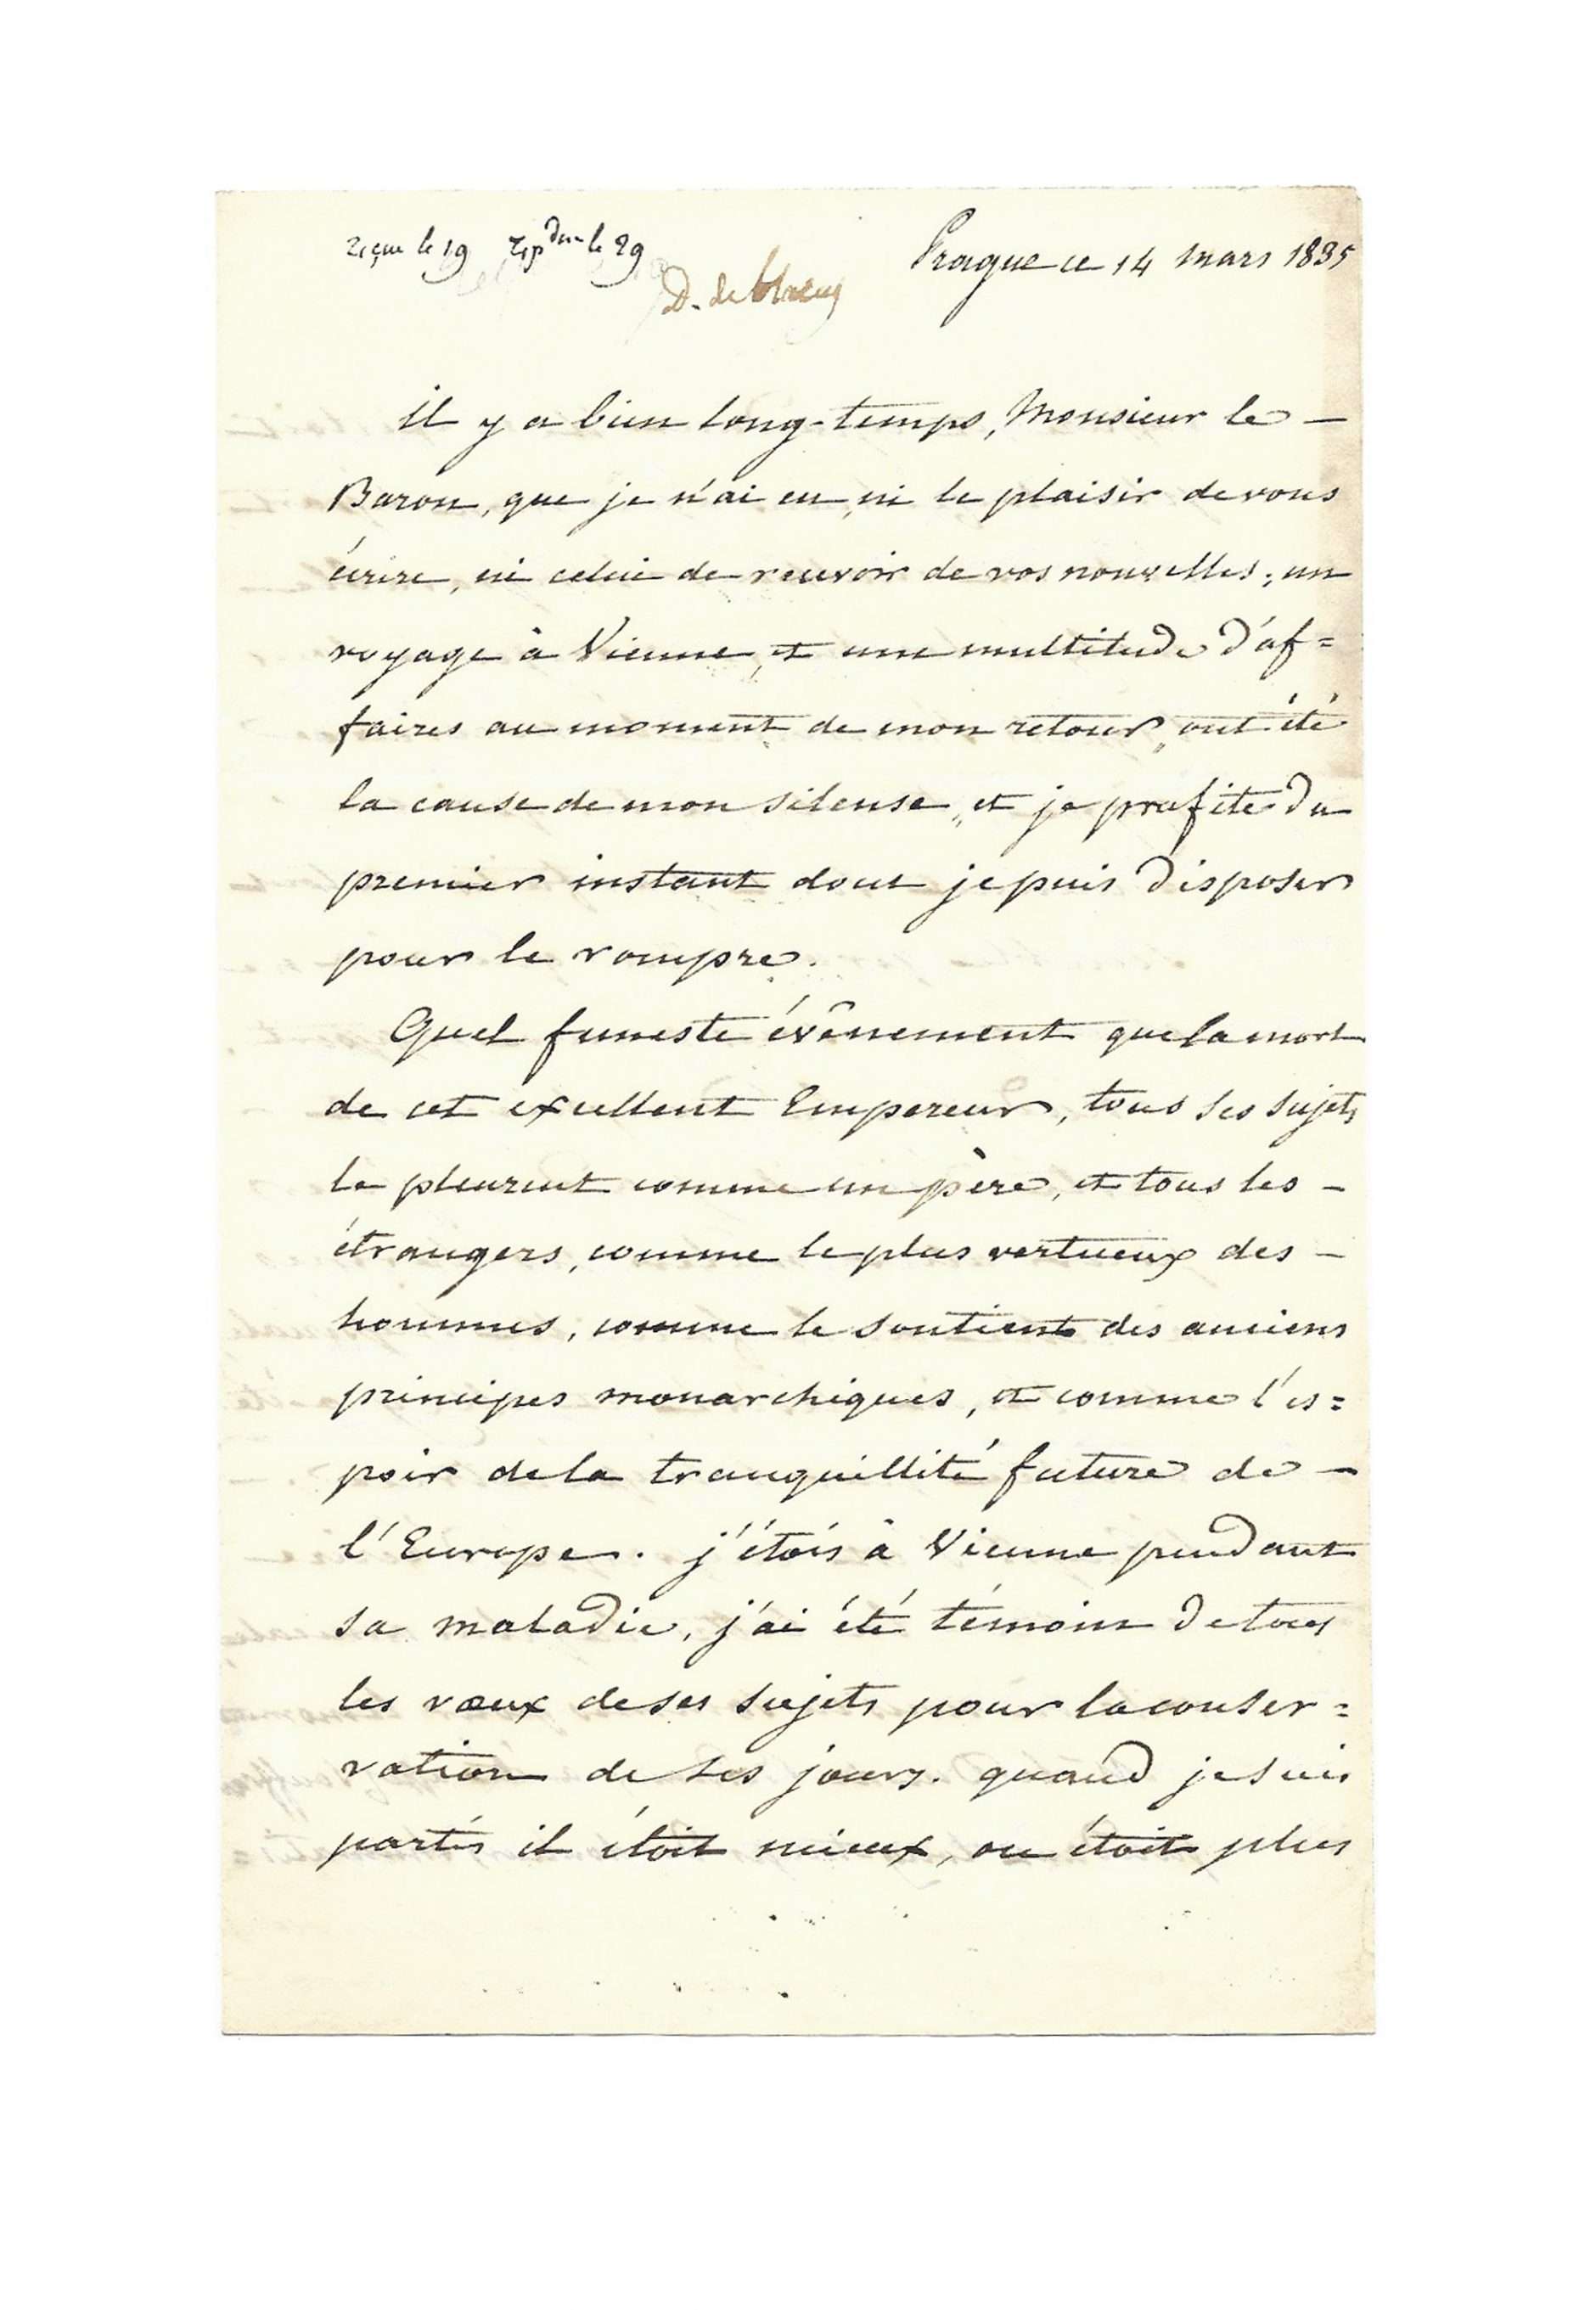 reçu le 19 rép.due le 29
D. de Blacas
Prague ce 14 mars 1835
il y a bien long-temps, Monsieur le -
Baron, que je n'ai eu, ni le plaisir de vous
écrire, ni celui de recevoir de vos nouvelles; un
voyage à Vienne, et une multitude d'af=
faires au moment de mon retour, ont été
la cause de mon silense, et je profite du
premier instant dont je puis disposer
pour le rompre.
Quel funeste évênement que la mort
de cet excellent Empereur, tous ses sujets
le pleurent comme un père, et tous les -
étrangers, comme le plus vertueux des -
hommes, comme le soutient des anciens
principes monarchiques, et comme l'es=
poir de la tranquillité future de -
l'Europe. j'étois à Vienne pendant
sa maladie, j'ai été témoin de tous
les vœux de ses sujets pour la conser=
vation de ses jours. quand je suis
partis il étoit mieux, on étoit plus